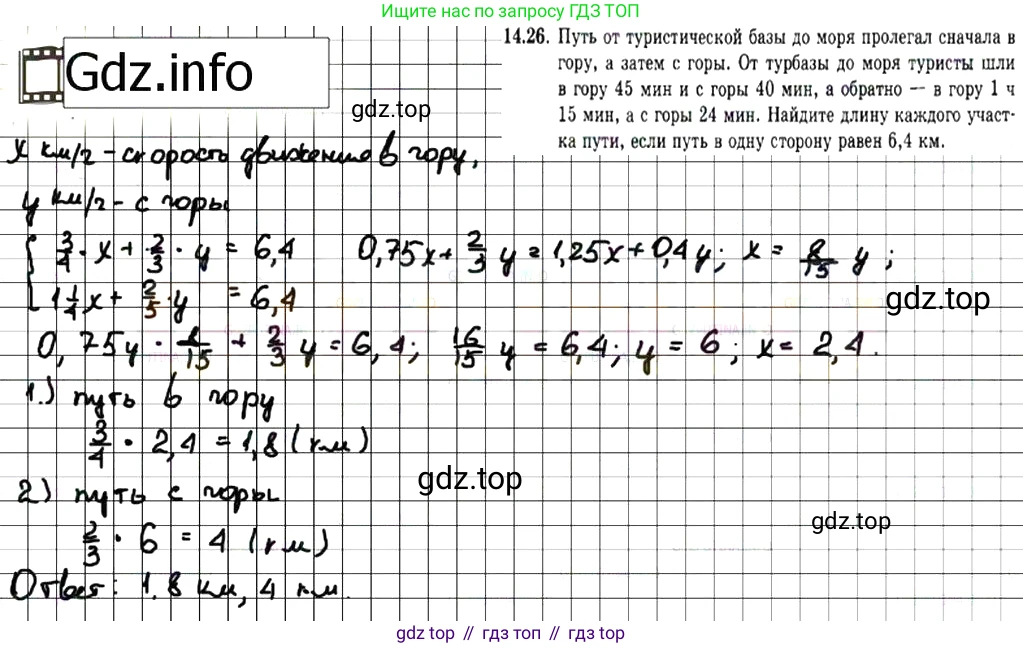 Ищите нас по запросу ГДЗ ТОП
Gdz.info
14.26. Путь от туристической базы до моря пролегал сначала в
гору, а затем с горы. От турбазы до моря туристы шли
в гору 45 мин и с горы 40 мин, а обратно — в гору 1 ч
15 мин, а с горы 24 мин. Найдите длину каждого участ-
ка пути, если путь в одну сторону равен 6,4 км.
gdz.top
x км/г - скорость движение в гору,
y км/г - с горы
3/4 · x + 2/3 · y = 6,4 0,75x + 2/3 y = 1,25x + 0,4y; x = 8/15 y;
1 1/4 x + 2/5 · y = 6,4
gdz.top
0,75y · 8/15 + 2/3 y = 6,4; 16/15 y = 6,4; y = 6; x = 2,4.
1.) путь в гору
3/4 · 2,4 = 1,8 (км)
gdz.top
2) путь с горы
gdz.top
2/3 · 6 = 4 (км)
Ответ: 1.8 км, 4 км.
gdz top // гдз топ // gdz top